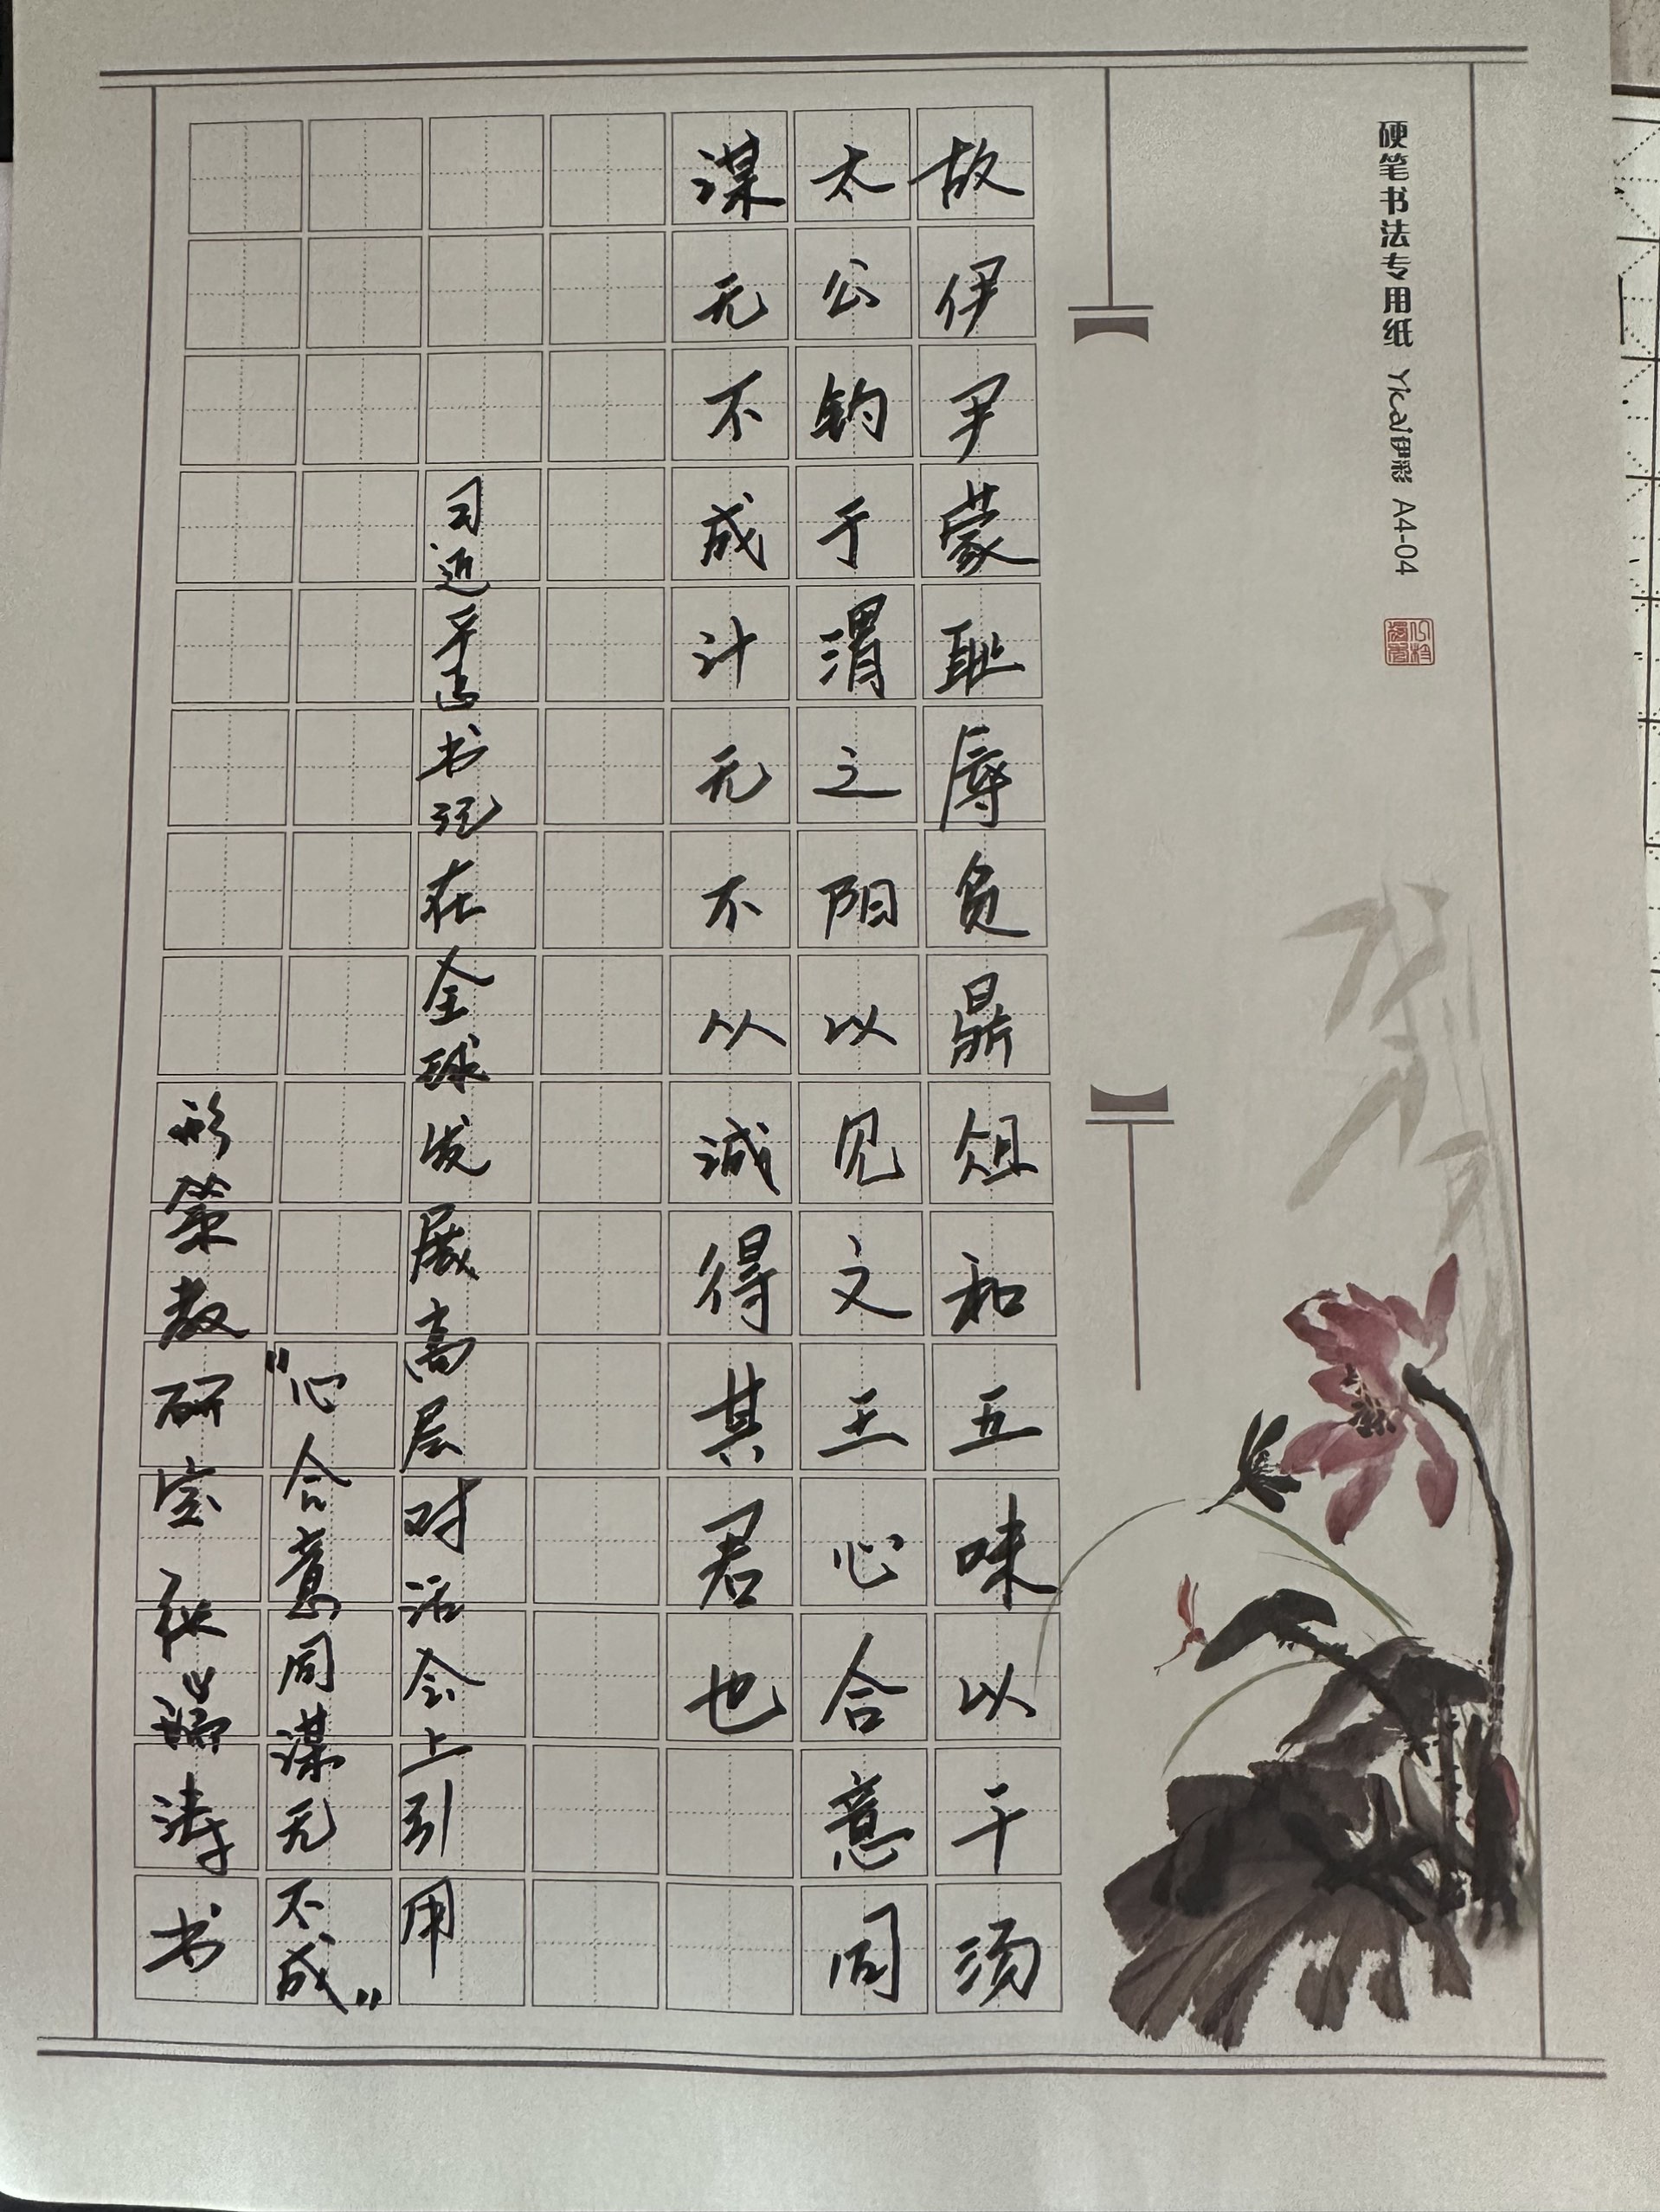 硬笔书法专用纸 Yicai伊彩 A4-04
故伊尹蒙耻辱负鼎俎和五味以干汤
太公钓于渭之阳以见文王心合意同
谋无不成计无不从诚得其君也
习近平总书记在全球发展高层对话会上引用
“心合意同谋无不成”
形策教研室 张瑞涛书